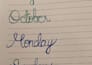 October
Monday